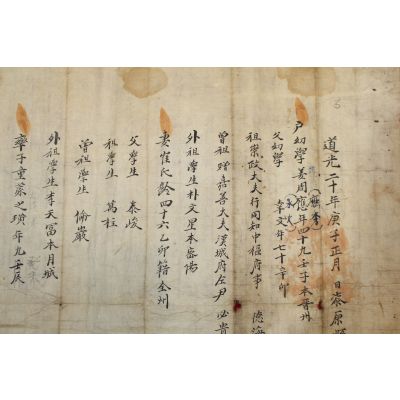 道光二十年庚子正月 日泰原縣
戶幼學姜周應年四十九壬子本晋州
父幼學 章文年七十辛卯
祖崇政大夫行同知中樞府事 德海
曾祖贈嘉善大夫漢城府左尹 必貴
外祖學生朴文星本密陽
妻崔氏齡四十六乙卯籍全州
父學生 泰峻
祖學生 萬柱
曾祖學生 倫巖
外祖學生李天富本月城
率子童蒙之璜年九壬辰